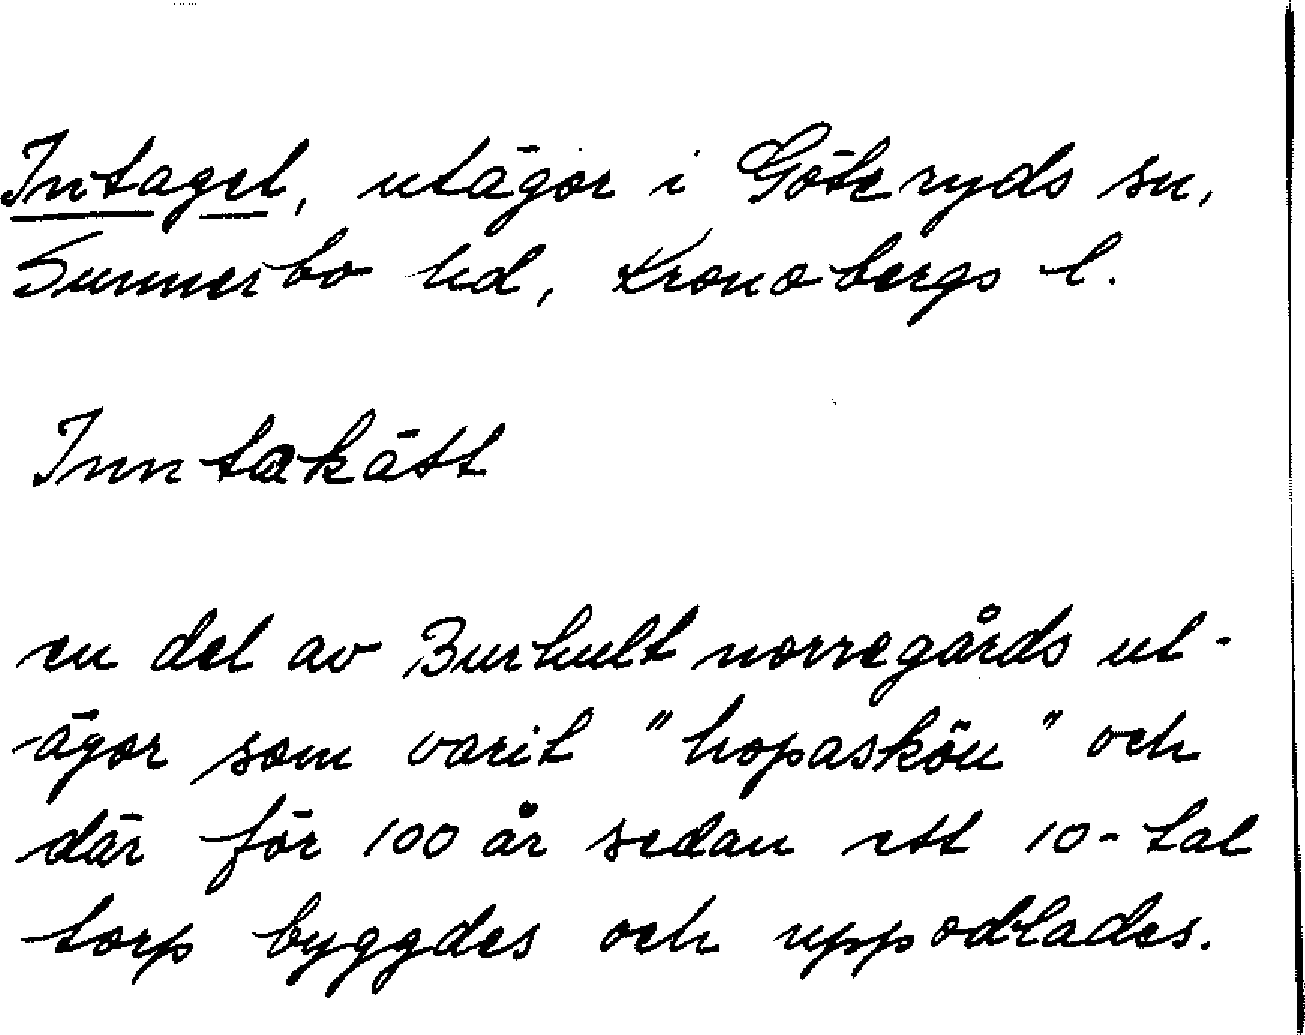 Intaget, utägor i Göteryds sn,
Sunnerbo hd, Kronobergs l.
Inntakätt
en del av Burhult norregårds ut-
ägor som varit "hopaskön" och
där för 100 år sedan ett 10-tal
torp byggdes och uppodlades.